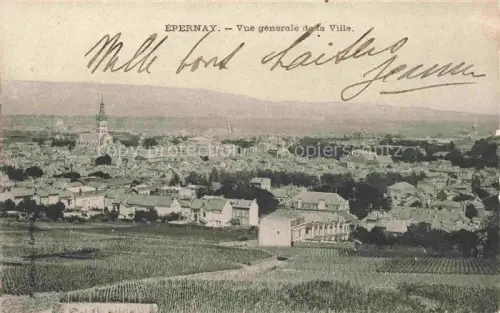 ÉPERNAY. - Vue générale de la Ville.
Mille bons baisers
Jeanne